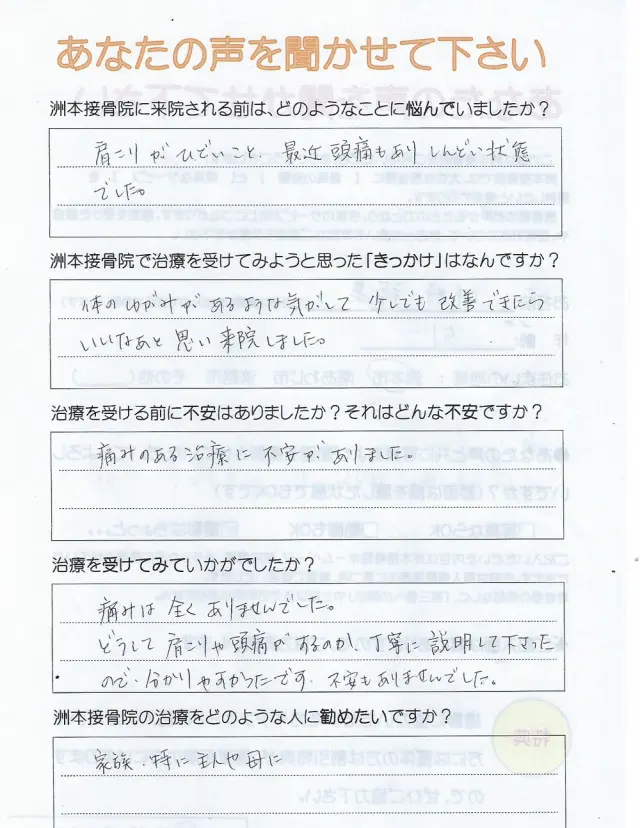 あなたの声を聞かせて下さい
洲本接骨院に来院される前は、どのようなことに悩んでいましたか？
肩こりがひどいこと、最近頭痛もありしんどい状態
でした。
洲本接骨院で治療を受けてみようと思った「きっかけ」はなんですか？
体のゆがみがあるような気がして少しでも改善できたら
いいなあと思い来院しました。
治療を受ける前に不安はありましたか？それはどんな不安ですか？
痛みのある治療に不安がありました。
治療を受けてみていかがでしたか？
痛みは全くありませんでした。
どうして肩こりや頭痛がするのか、丁寧に説明して下さった
ので、分かりやすかったです。不安もありませんでした。
洲本接骨院の治療をどのような人に勧めたいですか？
家族、特に主人や母に